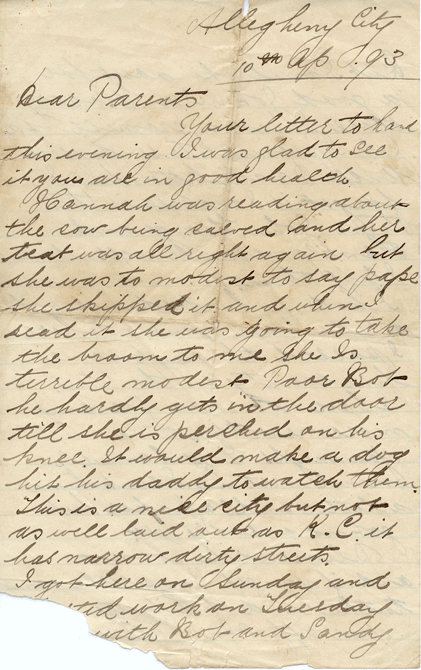 Allegheny City
10th Ap. 93
Dear Parents
Your letter to hand
this evening I was glad to see
it you are in good health
Hannah was reading about
the cow being calved and her
teat was all right again but
she was to modest to say pape
she skipped it and when I
read it she was going to take
the broom to me she Is
terrible modest Poor Bob
he hardly gets in the door
till she is perched on his
knee It would make a dog
hit his daddy to watch them.
This is a nice city but not
as well laid out as K.C. it
has narrow dirty streets.
I got here on Sunday and
work on Tuesday
with Bob and Sandy